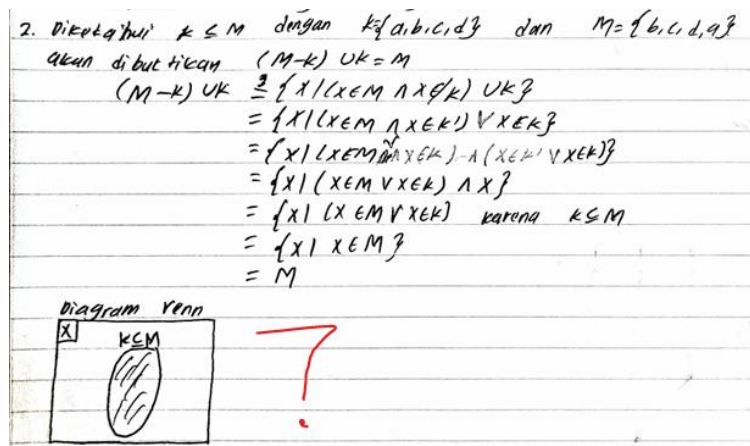 2. Diketahui K ⊆ M dengan K={a,b,c,d} dan M={b,c,d,a}
akan dibuktikan (M-K) ∪ K = M
(M-K) ∪ K ≟ {X|(X∈M ∧ X∉K) ∪ K}
= {X|(X∈M ∧ X∈K') ∨ X∈K}
= {X|(X∈M ∨ X∈K) ∧ (X∈K' ∨ X∈K)}
= {X|(X∈M ∨ X∈K) ∧ X}
= {X|(X∈M ∨ X∈K) karena K ⊆ M
= {X| X∈M}
= M
Diagram Venn
X
K⊆M
?